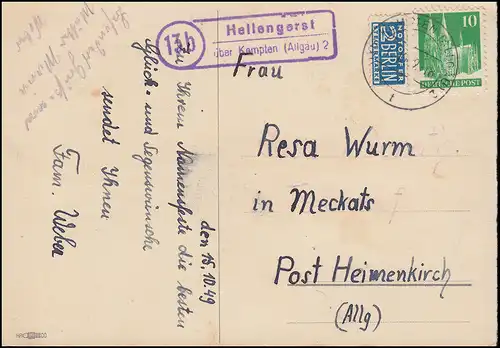 13b
Hellengerst
über Kempten (Allgäu) 2
NOTOPFER
2 BERLIN
STEUERMARKE
10
DEUTSCHE POST
Frau
Resa Wurm
in Meckats
Post Heimenkirch
(Allg)
den 15.10.49
Zu Ihrem Namensfeste die besten
Glück- und Segenswünsche
sendet Ihnen
Fam. Weber